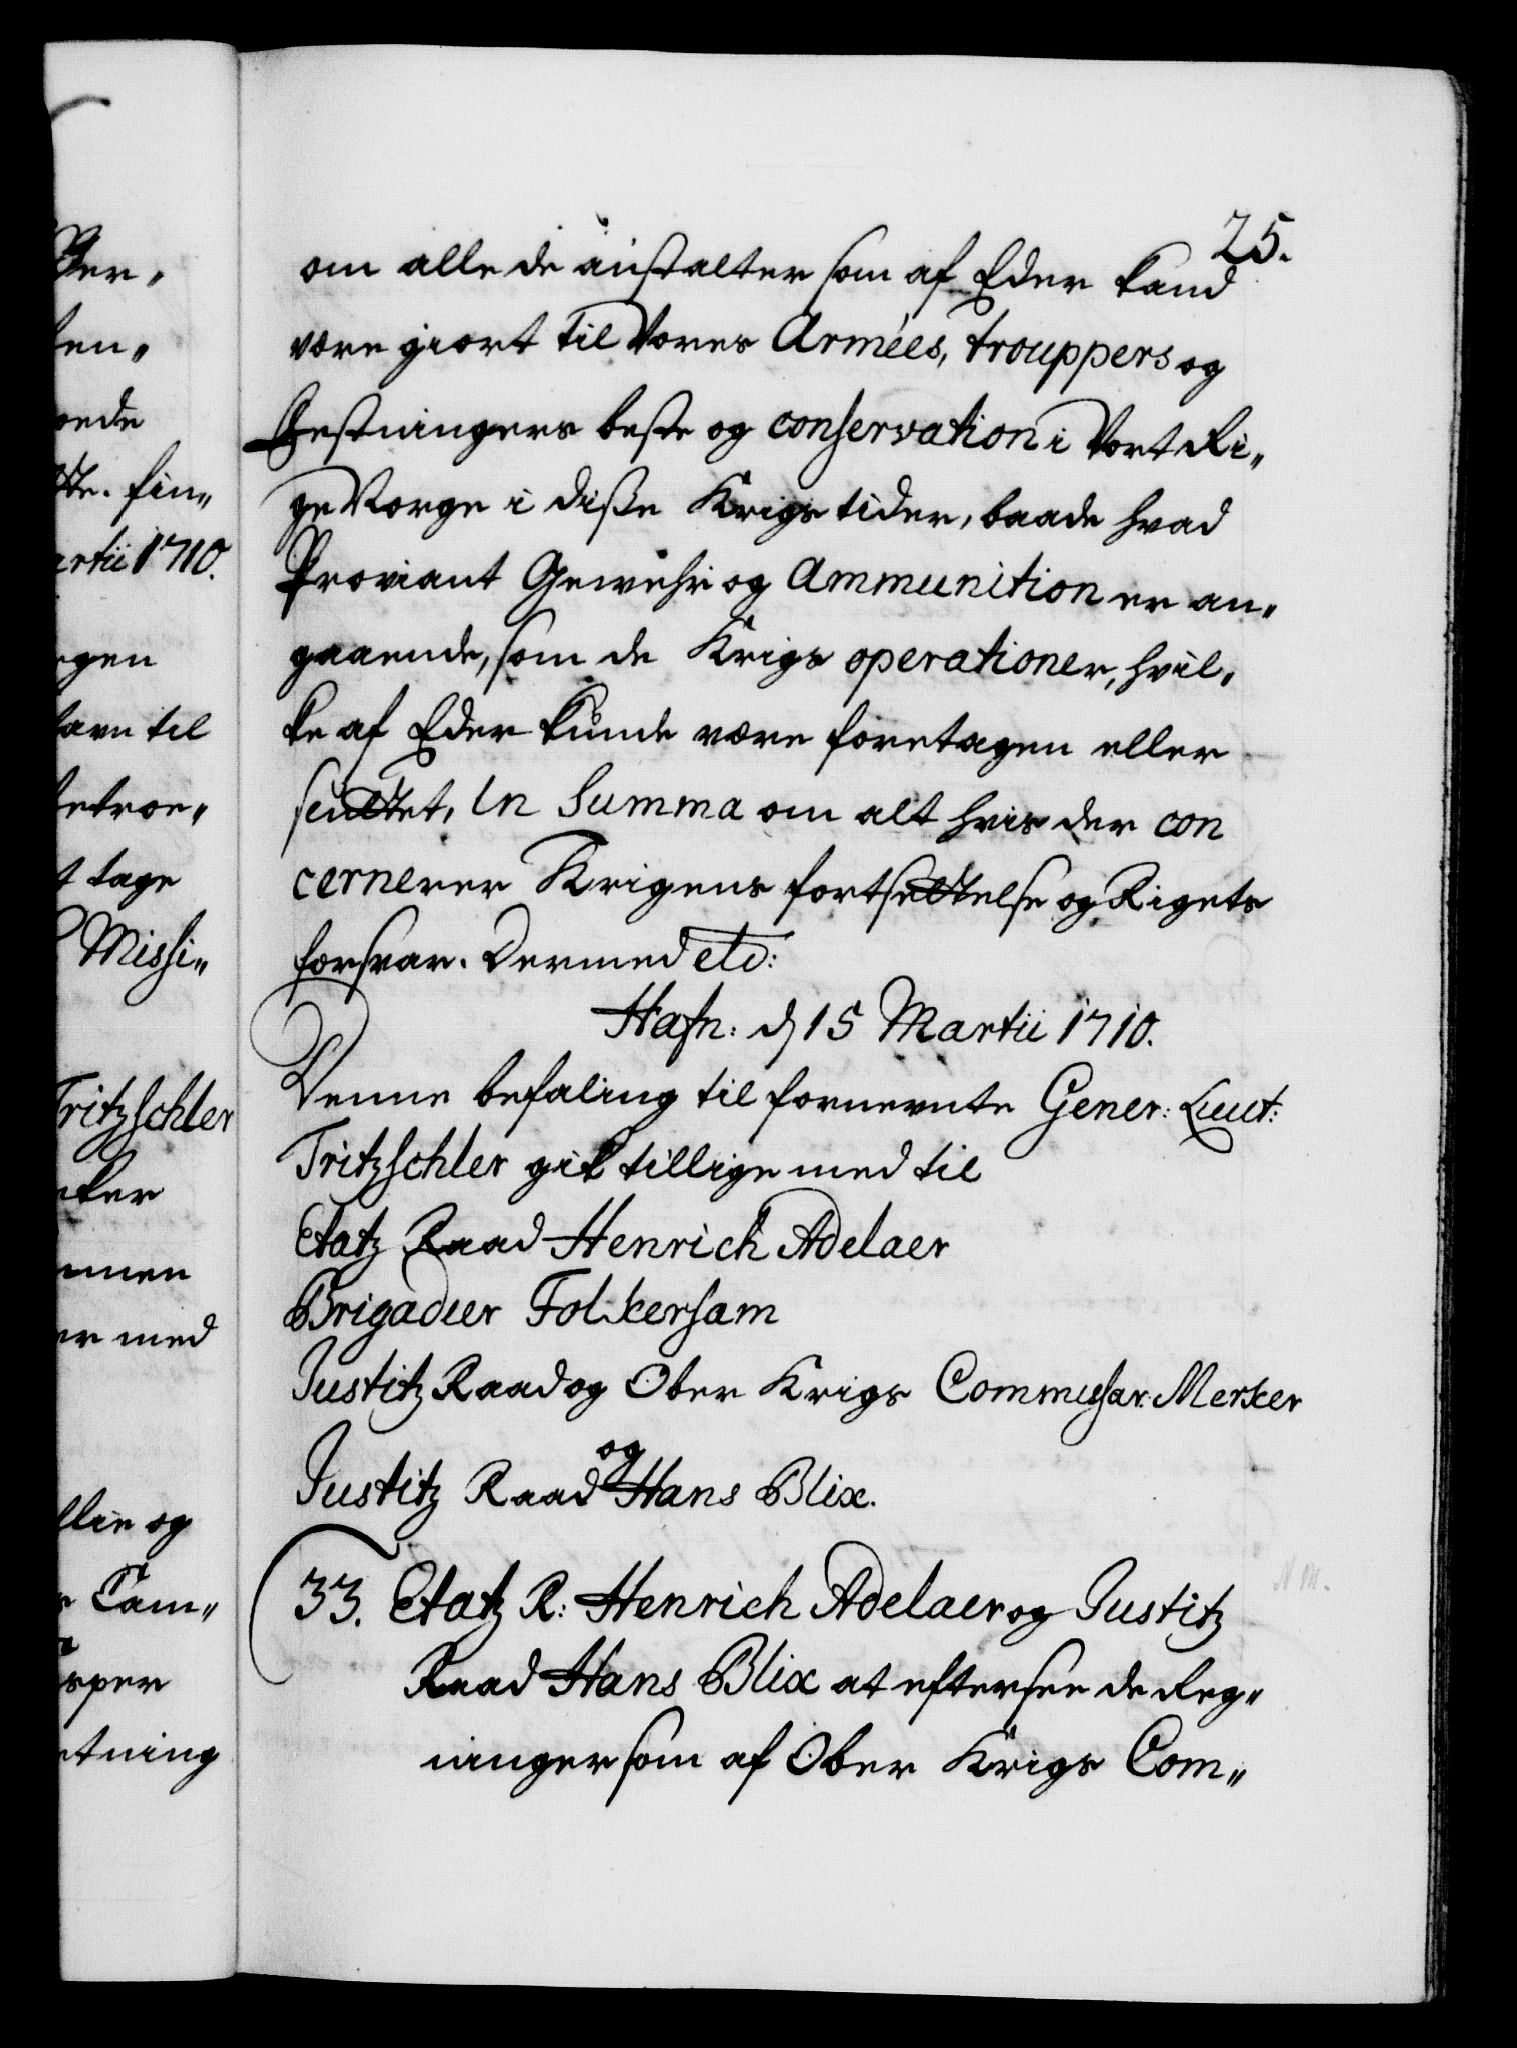 25.
om alle de anstalter som af Eder kand
være giort til Vores Armées, trouppers og
Festningers beste og conservation i Vort Ri„
ge Norge i diße Krigs tider, baade hvad
Proviant Gewehr og Ammunition er an„
gaaende, som de Krigs operationer, hvil„
ke af Eder kunde være foretagen eller
senttet, In Summa om alt hvis der con
cernerer Krigens fortsettelse og Rigets
forsvar. Dermed etc:
Hafn: d 15 Martii 1710.
Denne befaling til fornevnte Gener: Lieut:
Tritzschler gik tillige med til
Etatz Raad Henrich Adelaer
Brigadier Folkersam
Justitz Raad og Ober Krigs Commissar: Merker
og
Justitz Raad Hans Blix.
33. Etatz R: Henrich Adelaer og Justitz
Raad Hans Blix at eftersee de Reg„
ninger som af Ober Krigs Com„
artii 1710.
avn til
t tage
Missi„
Tritzschler
er med
Cam„